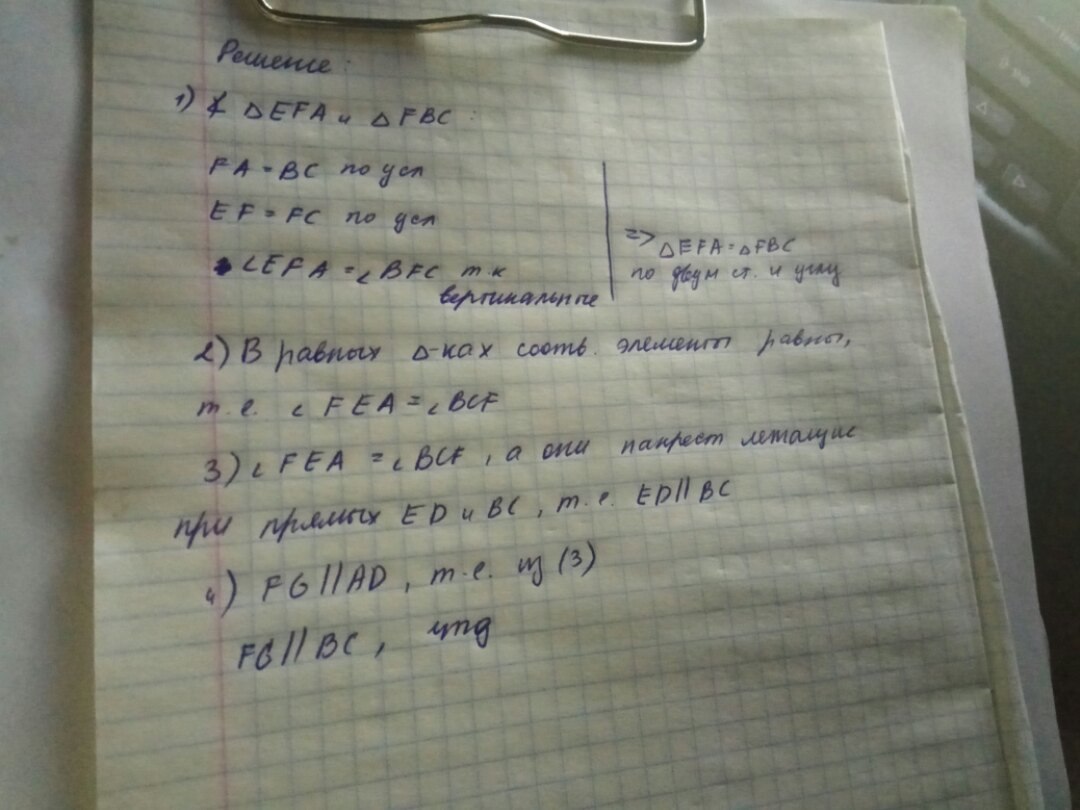 Решение:
1) ∠ △EFA и △FBC:
FA = BC по усл
EF = FC по усл
∠EFA = ∠BFC т к
вертикальные
=> △EFA = △FBC
по двум ст. и углу
2) В равных △-ках соотв. элементы равны,
т. е. ∠FEA = ∠BCF
3) ∠FEA = ∠BCF, а они накрест лежащие
при прямых ED и BC, т. е. ED || BC
4) FG || AD, т. е. из (3)
FG || BC, чтд